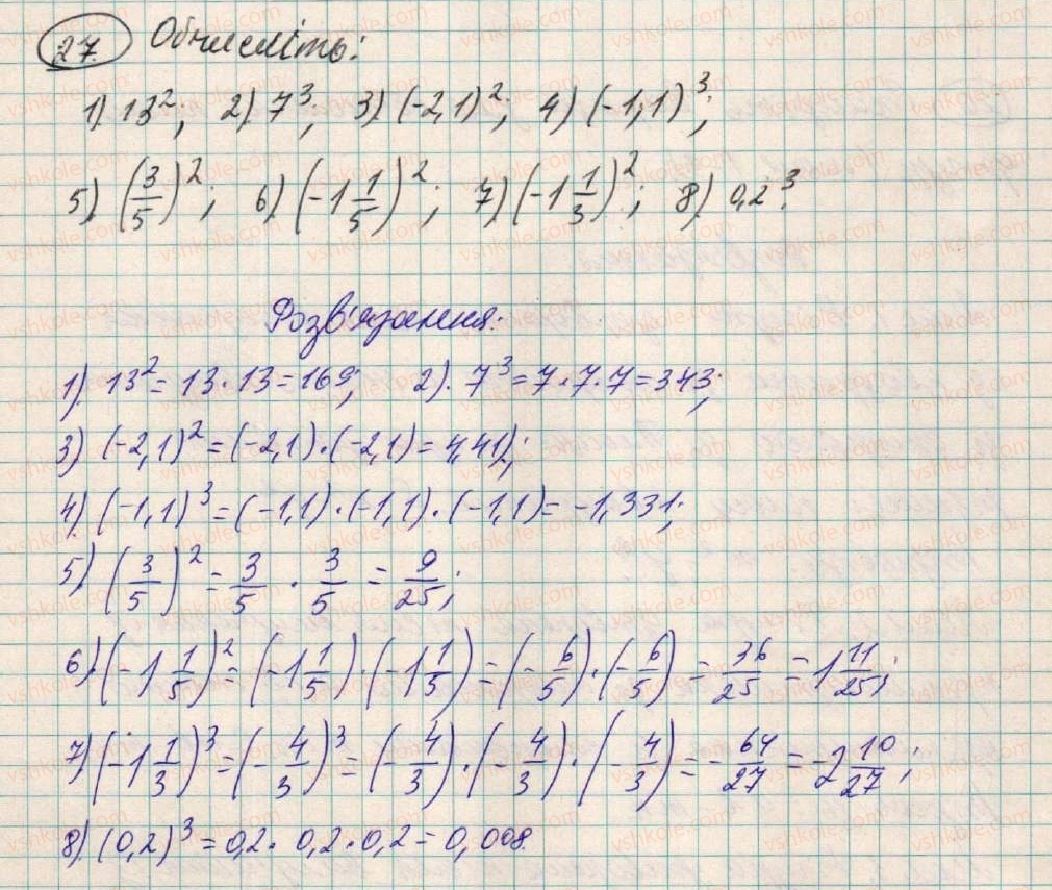 27. Обчисліть:
1) 13²; 2) 7³; 3) (-2,1)²; 4) (-1,1)³;
5) (3/5)²; 6) (-1 1/5)²; 7) (-1 1/3)²; 8) 0,2³.
Розв'язання:
1) 13² = 13 · 13 = 169; 2) 7³ = 7 · 7 · 7 = 343;
3) (-2,1)² = (-2,1) · (-2,1) = 4,41;
4) (-1,1)³ = (-1,1) · (-1,1) · (-1,1) = -1,331;
5) (3/5)² = 3/5 · 3/5 = 9/25;
6) (-1 1/5)² = (-1 1/5) · (-1 1/5) = (-6/5) · (-6/5) = 36/25 = 1 11/25;
7) (-1 1/3)³ = (-4/3)³ = (-4/3) · (-4/3) · (-4/3) = -64/27 = -2 10/27;
8) (0,2)³ = 0,2 · 0,2 · 0,2 = 0,008
vshkole.com